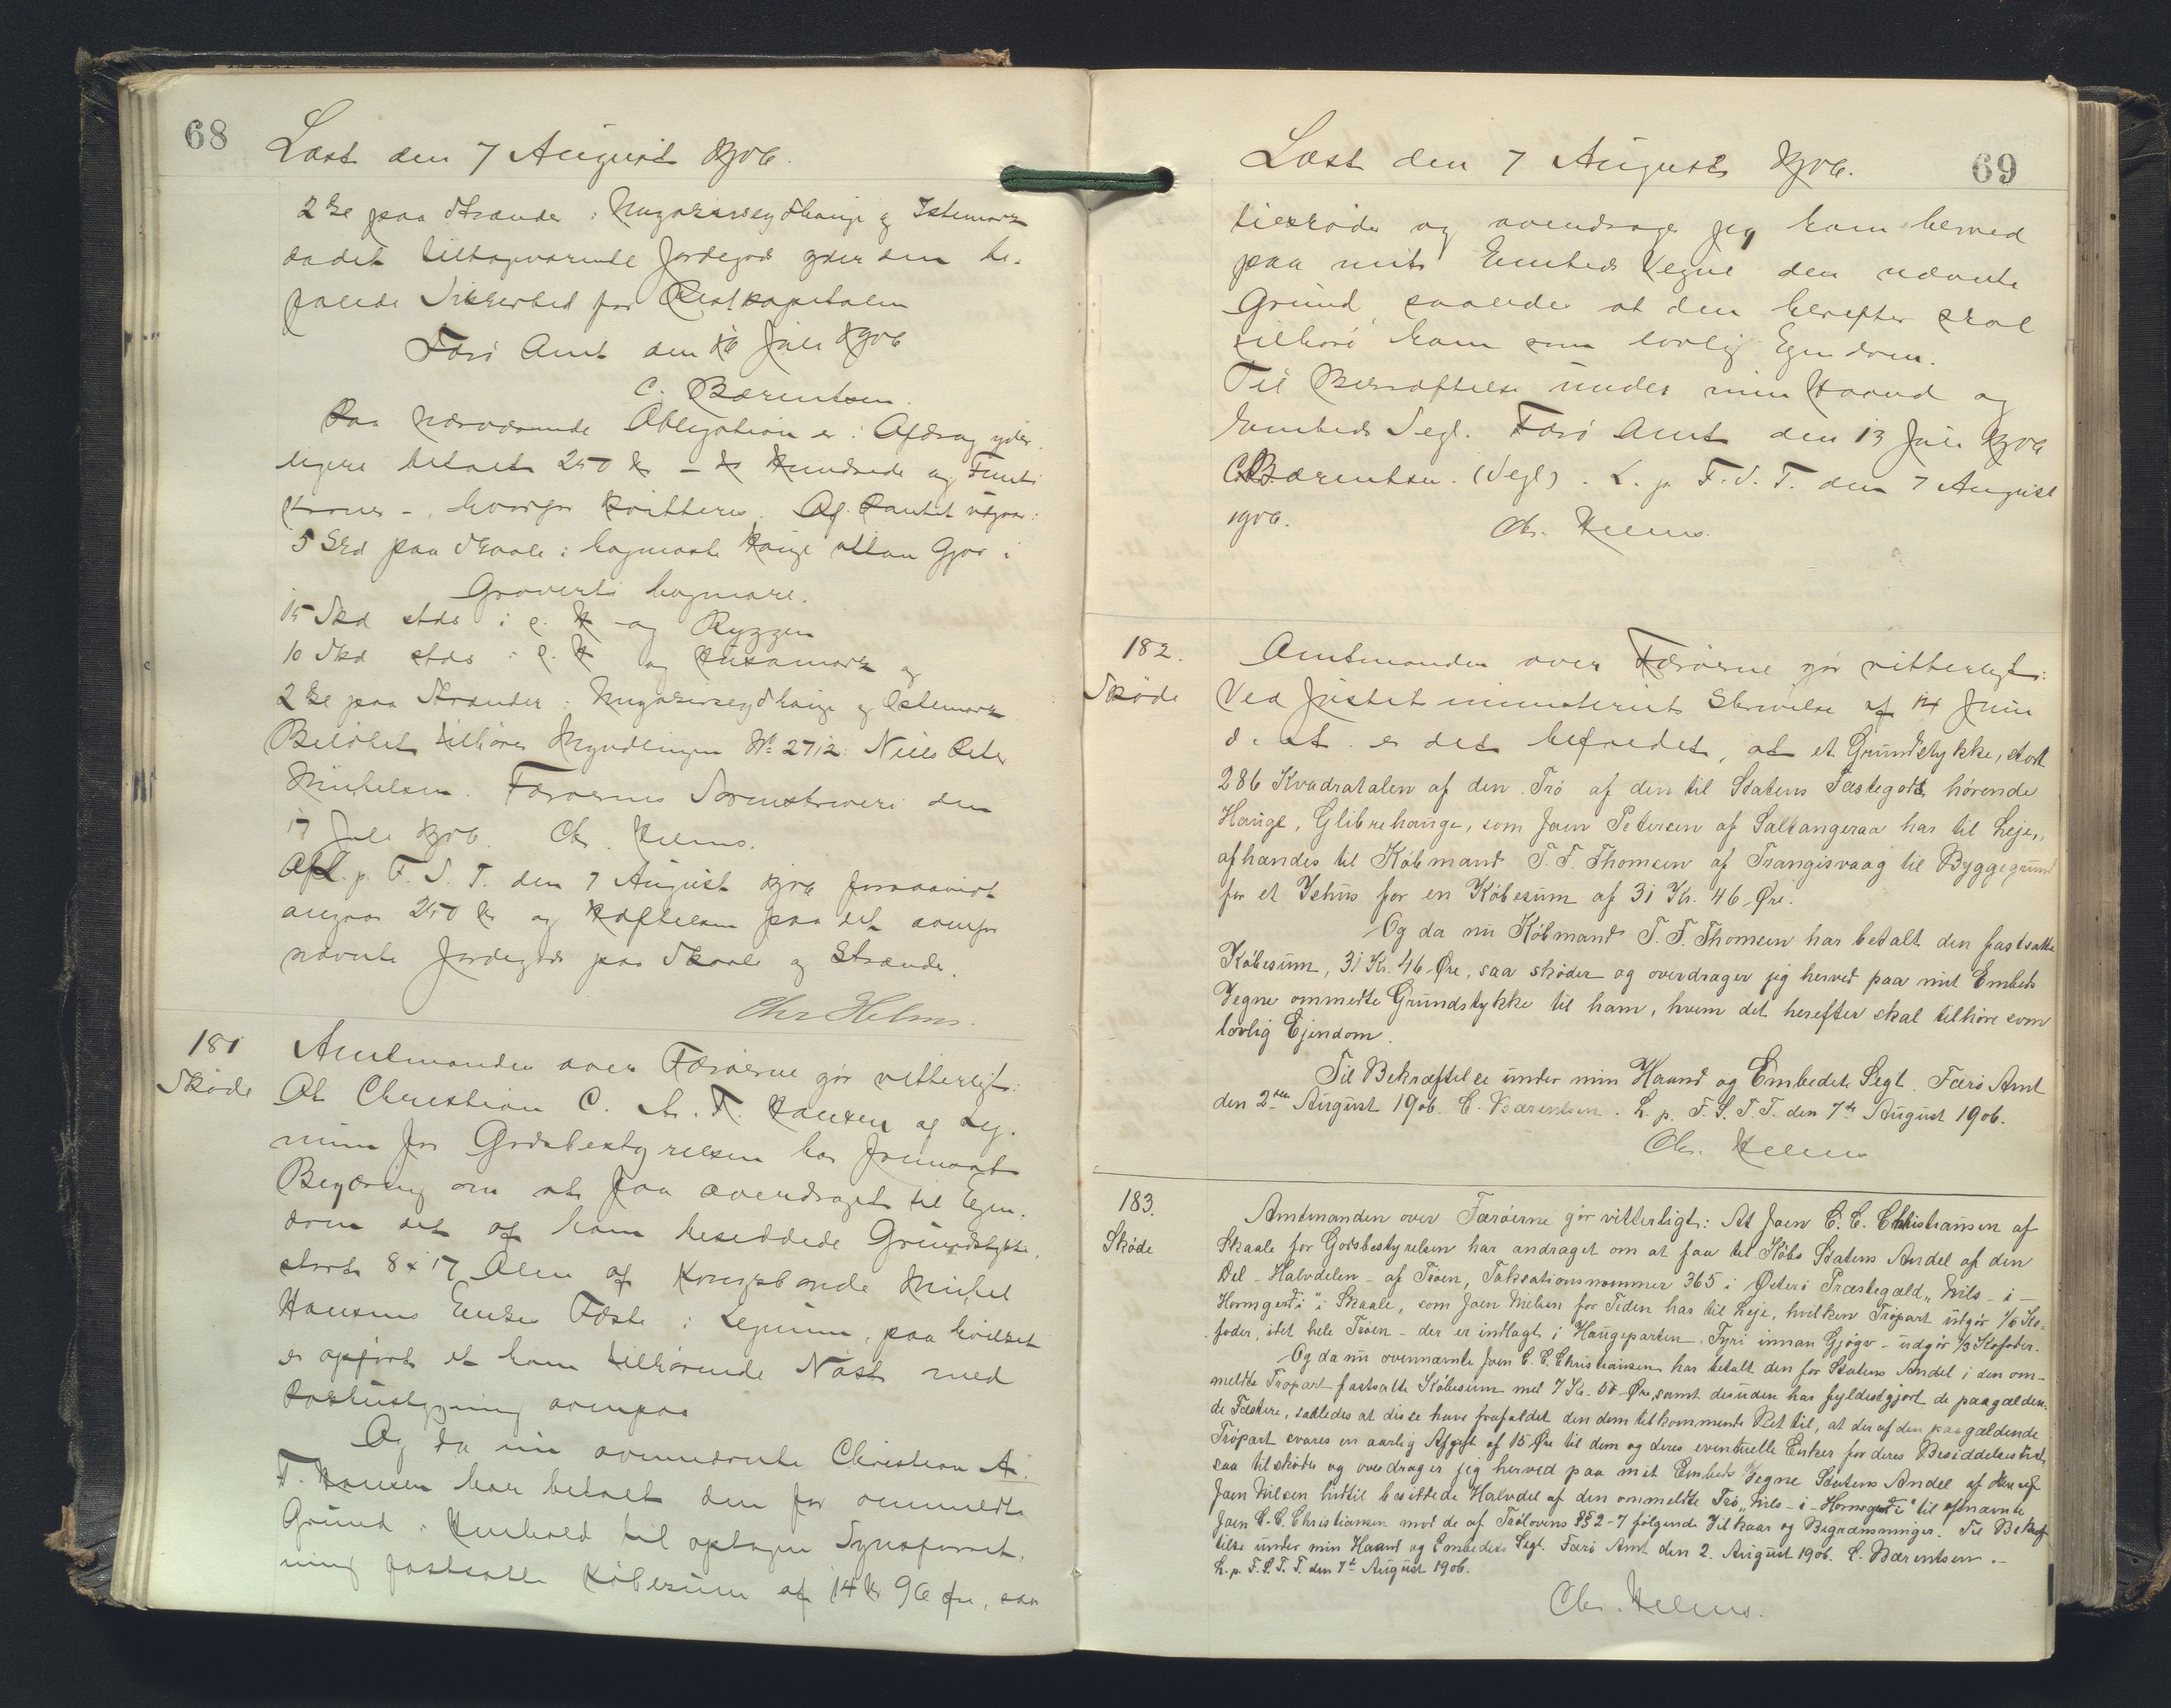 68
Læst den 7 August 1906.
2 Gl paa Strænder i Nugarsveg Hauge og Istemark
sadet tilbageværende Jordegods yder den be-
falede Sikkerhed for Restkapitalen
Færö Amt den 16 Juli 1906
C. Bærentsen.
Paa nærværende Obligation er i Afdrag yder-
ligere betalt 250 Kr - to Hundrede og Femti
Kroner -, hvorfor kvitteres. Af Pantet udgaar:
5 Skd paa Skaale i bagmaste Hauge uttan Gjov i
Groverti hagmare.
15 Skd stds i s. H og Ryggen
10 Skd stds i s. H og Husamark og
2 Gl paa Strænder i Nugarsveg Hauge og Istemark
Belöbet tilhörer Myndlingen No 2712 Niels Peter
Mikkelsen. Færöernes Sorenskriveri den
17 Juli 1906. Chr. Helms.
Afl. p. F. S. T. den 7 August 1906 forsaavidt
angaar 250 Kr og Hæftelsen paa det ovenfor
nævnte Jordegods paa Skaale og Strænder.
Chr Helms.
181
Skøde
Amtmanden over Færöerne gör vitterligt:
At Christian C. A. F. Hansen af Leg-
num for Godsbestyrelsen har fremsat
Begæring om at faa overdraget til Ejen-
dom det af ham besiddede Grundstykke,
stort 8 x 17 Alen af Kongsbonde Mikkel
Hansens Enkes Fæste i Legnum, paa hvilket
er opfört et ham tilhörende Nöst med
Pakhusbygning ovenpaa
Og da nu ovennævnte Christian A.
F. Hansen har betalt den for ommeldte
Grund i Henhold til optagen Synsforret-
ning fastsatte Köbesum af 14 Kr 96 Øre, saa
69
Læst den 7 August 1906.
tilsköder og overdrager jeg ham herved
paa mit Embeds Vegne den nævnte
Grund saaledes at den herefter skal
tilhöre ham som lovlig Ejendom.
Til Bekræftelse under min Haand og
Embeds Segl. Færö Amt den 13 Juli 1906
C. Bærentsen. (Segl). L. p. F. S. T. den 7 August
1906. Chr. Helms.
182.
Skøde
Amtmanden over Færöerne gör vitterligt:
Ved Justitsministeriets Skrivelse af 14 Juni
d. A. er det bifaldet, at et Grundstykke, stort
286 Kvadratalen af den Trö af den til Statens Fæstegods hørende
Hauge, Glibrehauge, som Joen Petersen af Saltangeraa har til Leje,
afhændes til Købmand T. F. Thomsen af Trangisvaag til Byggegrund
for et Ishus for en Købesum af 31 Kr. 46 Øre.
Og da nu Købmand T. F. Thomsen har betalt den fastsatte
Købesum, 31 Kr. 46 Øre, saa skøder og overdrager jeg herved paa mit Embeds
Vegne ommeldte Grundstykke til ham, hvem det herefter skal tilhöre som
lovlig Ejendom.
Til Bekræftelse under min Haand og Embedets Segl. Færö Amt
den 2den August 1906. C. Bærentsen. L. p. F. S. T. T. den 7de August 1906.
Chr. Helms
183.
Skøde
Amtmanden over Færøerne gör vitterligt: At Joen C. C. Christiansen af
Skaale for Godsbestyrelsen har andraget om at faa til Købs Statens Andel af den
Del - Halvdelen - af Trøen, Taksationsnommer 365 i Østerö Præstegæld „Nils - i -
Hornsgerdi“ i Skaale, som Joen Nielsen for Tiden har til Leje, hvilken Tröpart udgør 1/6 Ko-
foder, idet hele Trøen - der er indlagt i Haugeparten Fyri innan Gjógv - udgör 1/3 Kofoder.
Og da nu ovennævnte Joen C. C. Christiansen har betalt den for Statens Andel i den om-
meldte Tropart fastsatte Købesum med 7 Kr. 50 Øre, samt desuden har fyldestgjort de paagælden-
de Fæstere, saaledes at disse have frafaldet den dem tilkommende Ret til, at der af den paagældende
Tröpart svares en aarlig Afgift af 15 Øre til dem og deres eventuelle Enker for deres Besiddelsestid,
saa tilskøder og overdrager jeg herved paa mit Embeds Vegne Statens Andel af den af
Joen Nielsen hidtil besiddede Halvdel af den ommeldte Trö „Nils - i - Hornsgerdi“ til ofnævnte
Joen C. C. Christiansen mod de af Trölovens §§ 2-7 følgende Vilkaar og Begrænsninger. Til Bekræf-
telse under min Haand og Embedets Segl. Færö Amt den 2. August 1906. C. Bærentsen. -
L. p. F. S. T. T. den 7de August 1906.
Chr. Helms.